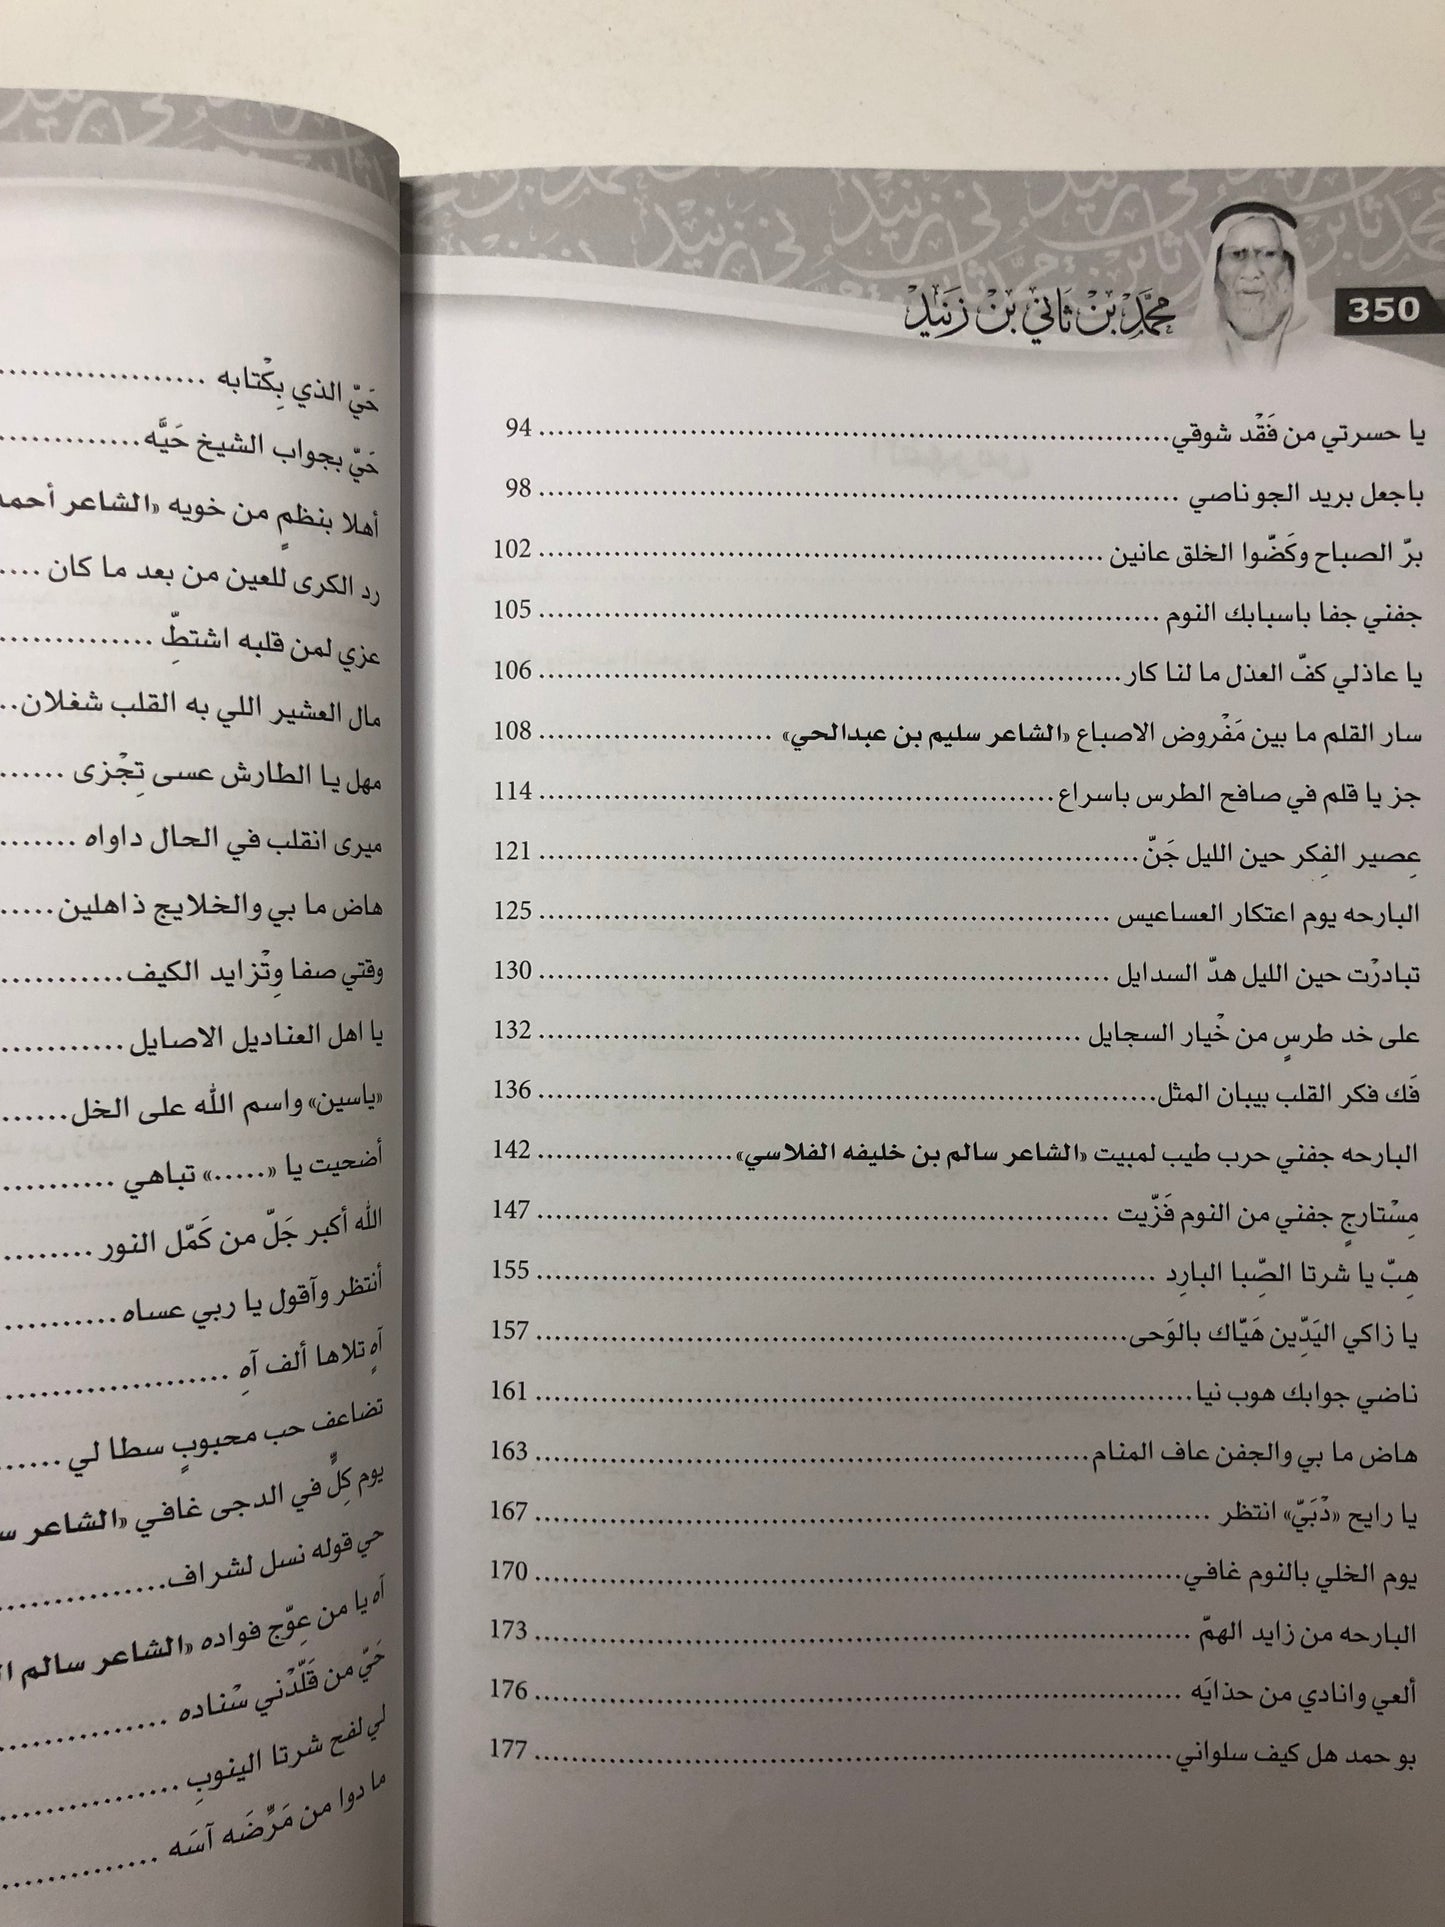 350
محمد بن ثاني بن زنيد
يا حسرتي من فَقْد شوقي 94
باجعل بريد الجو ناصي 98
برّ الصباح وكَضّوا الخلق عانين 102
جفني جفا باسبابك النوم 105
يا عاذلي كفّ العذل ما لنا كار 106
سار القلم ما بين مَفْروض الاصباع «الشاعر سليم بن عبدالحي» 108
جز يا قلم في صافح الطرس باسراع 114
عِصير الفِكر حين الليل جَنّ 121
البارحه يوم اعتكار العساعيس 125
تبادرْت حين الليل هدّ السدايل 130
على خد طرسٍ من خْيار السجايل 132
فَك فكر القلب بيبان المثل 136
البارحه جفني حرب طيب لمبيت «الشاعر سالم بن خليفه الفلاسي» 142
مِسْتارجٍ جفني من النوم فَزّيت 147
هِبّ يا شرتا الصِّبا البارِد 155
يا زاكي اليَدِّين هَيّاك بالوَحى 157
ناضي جوابك هوب نيا 161
هاض ما بي والجفن عاف المنام 163
يا رايح «دْبَيّ» انتظر 167
يوم الخلي بالنوم غافي 170
البارحه من زايد الهمّ 173
ألعي وانادي من حذايَه 176
بو حمد هل كيف سلواني 177
حَيّ الذي بِكْتابه
حَيّ بجواب الشيخ حَيَّه
أهلا بنظمٍ من خويه «الشاعر أحمد
رد الكرى للعين من بعد ما كان
عزي لمن قلبه اشتطِّ
مال العشير اللي به القلب شغلان
مهل يا الطارش عسى تِجْزى
ميرى انقلب في الحال داواه
هاض ما بي والخلايج ذاهلين
وقتي صفا وِتْزايد الكيف
يا اهل العناديل الاصايل
«ياسين» واسم الله على الخل
أضحيت يا «.....» تباهي
الله أكبر جَلّ من كَمّل النور
أنتظر وآقول يا ربي عساه
آهٍ تلاها ألف آهِ
تضاعف حب محبوبٍ سطا لي
يوم كِلٍّ في الدجى غافي «الشاعر
حي قوله نسل لشراف
آه يا من عِوّج فواده «الشاعر سالم
حَيّ من قَلّدْني سْناده
لي لفح شرتا الينوبِ
ما دوا من مَرِّضَه آسَه